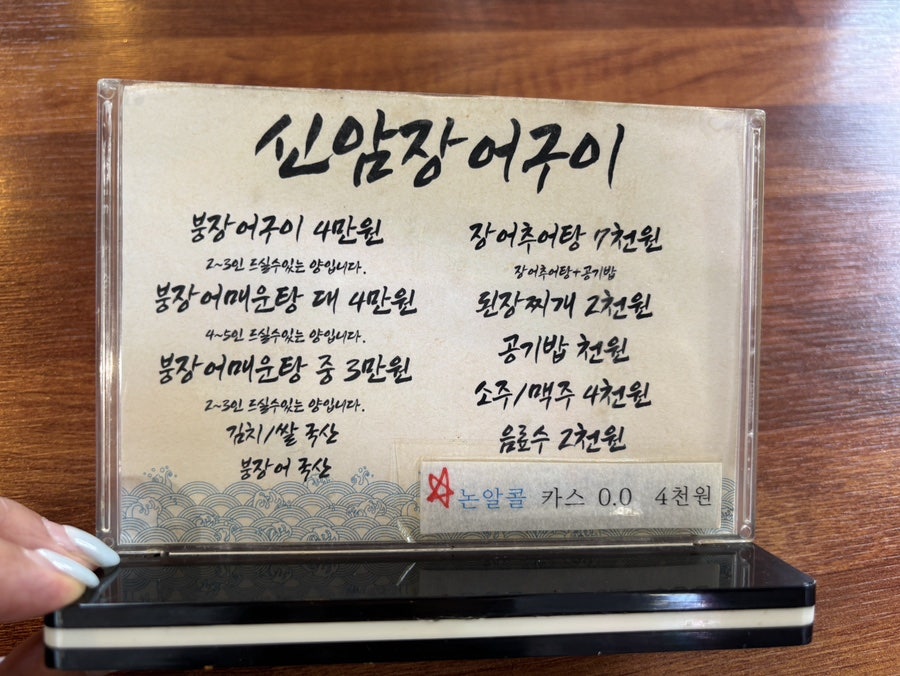 신암장어구이
붕장어구이 4만원
2~3인 드실수있는 양입니다.
붕장어매운탕 대 4만원
4~5인 드실수있는 양입니다.
붕장어매운탕 중 3만원
2~3인 드실수있는 양입니다.
김치/쌀 국산
붕장어 국산
장어추어탕 7천원
장어추어탕+공기밥
된장찌개 2천원
공기밥 천원
소주/맥주 4천원
음료수 2천원
논알콜 카스 0.0 4천원